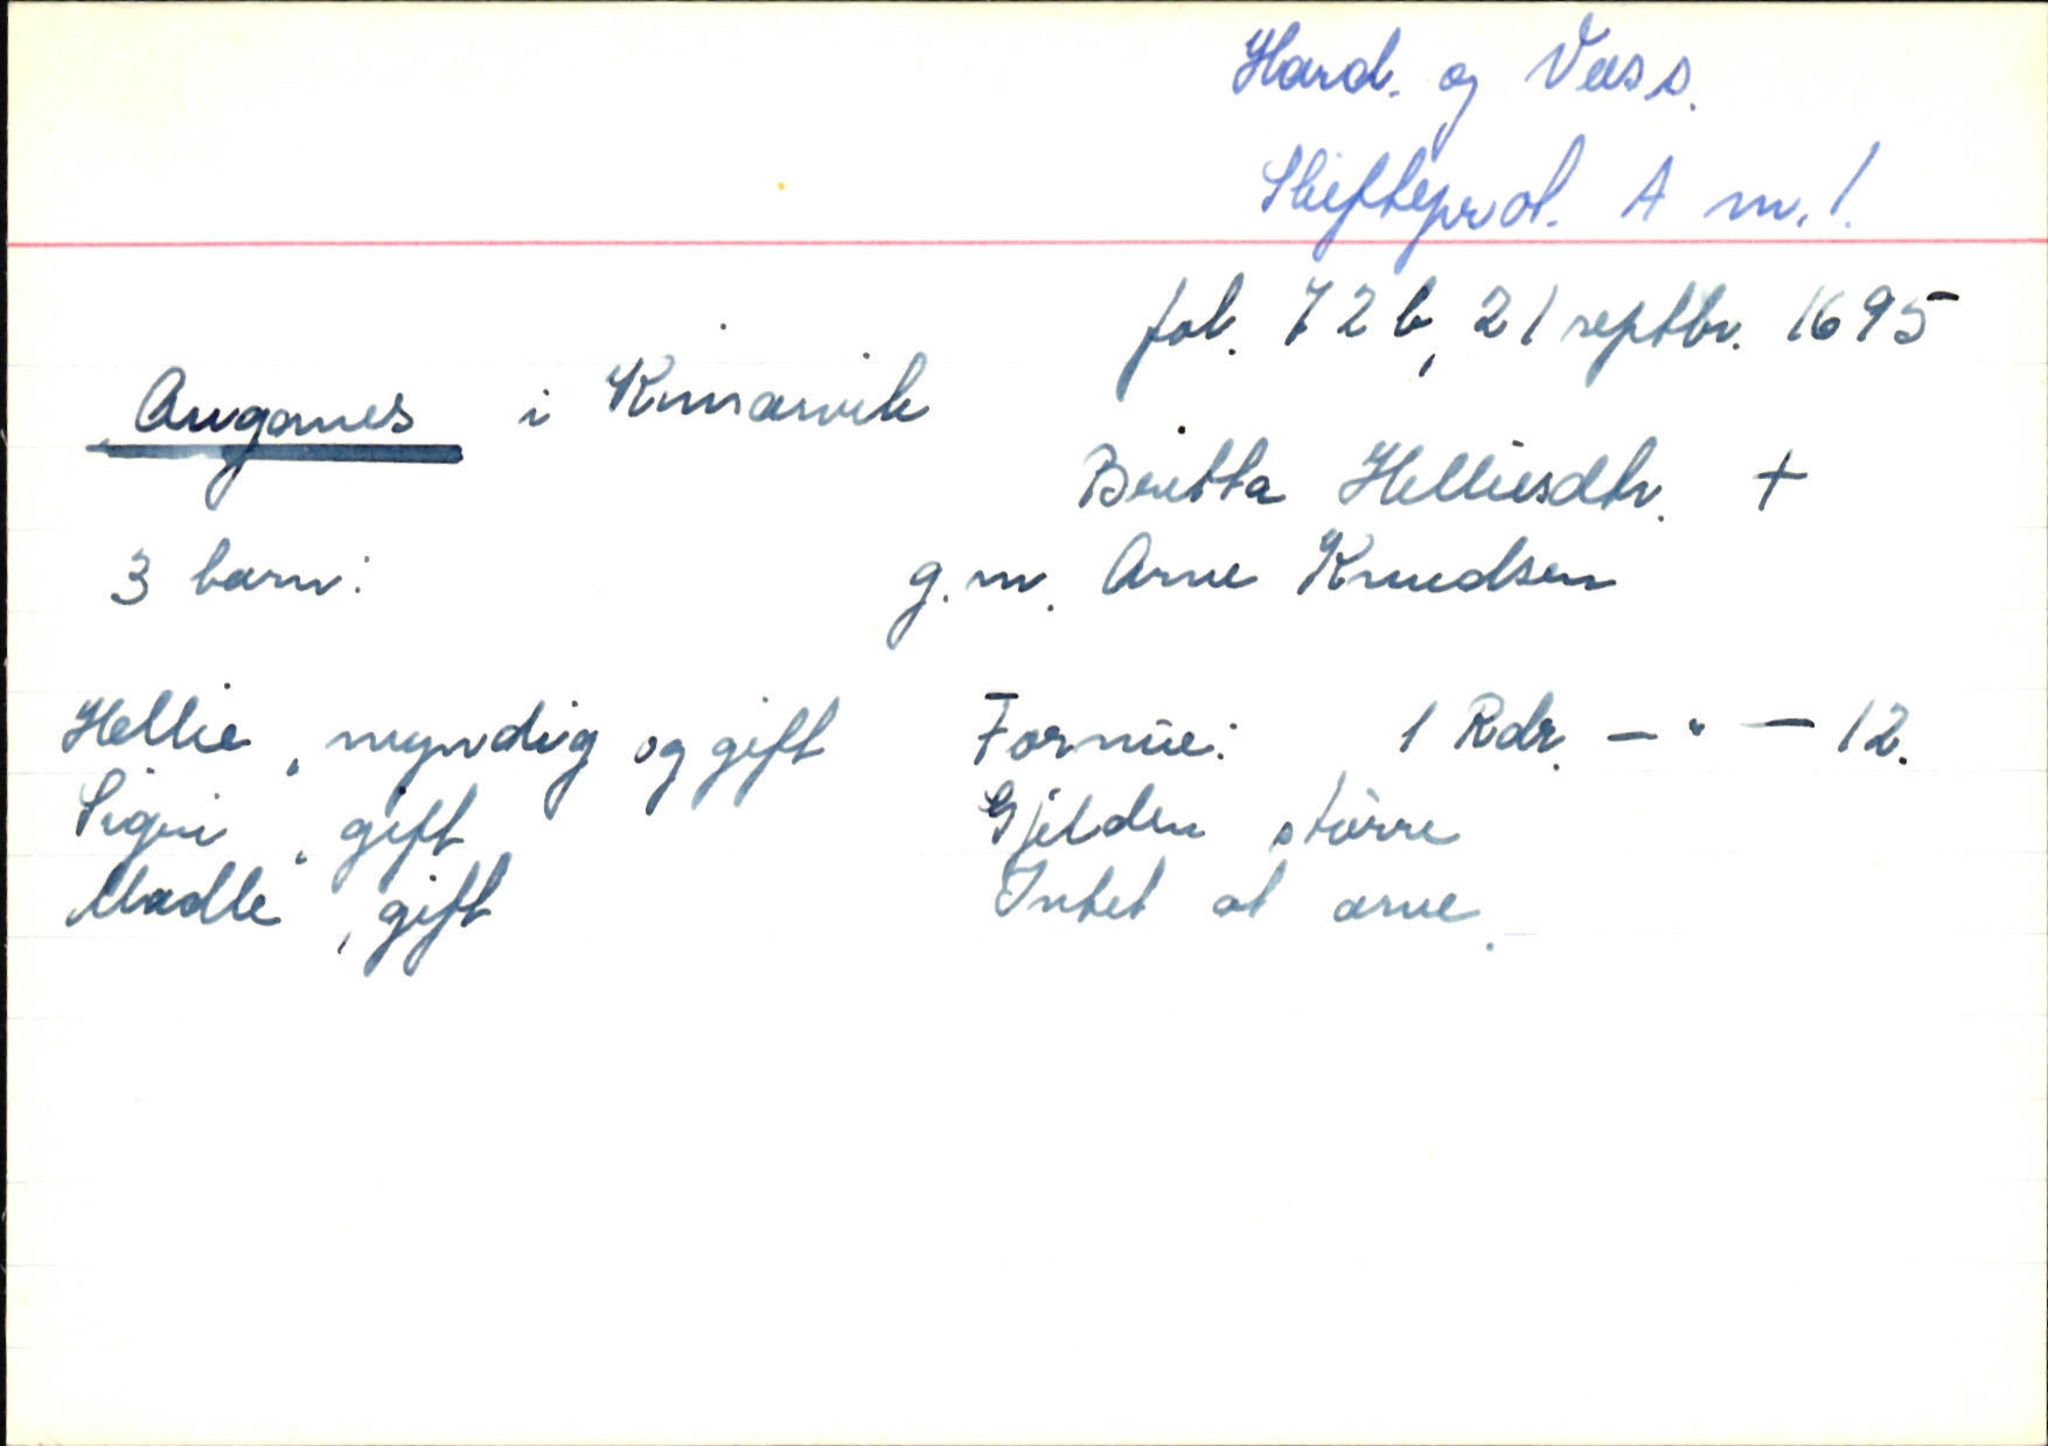 Hard. og Vass.
Skifteprot. A nr. 1.
fol. 72 b, 21 septbr. 1695
Auganes i Kinsarvik
Britta Helliesdtr. +
3 barn:
g. m. Arne Knudsen
Hellie, myndig og gift
Sigvi, gift
Madle, gift
Formue: 1 Rdr. — " — 12.
Gjelden större
Intet at arve.